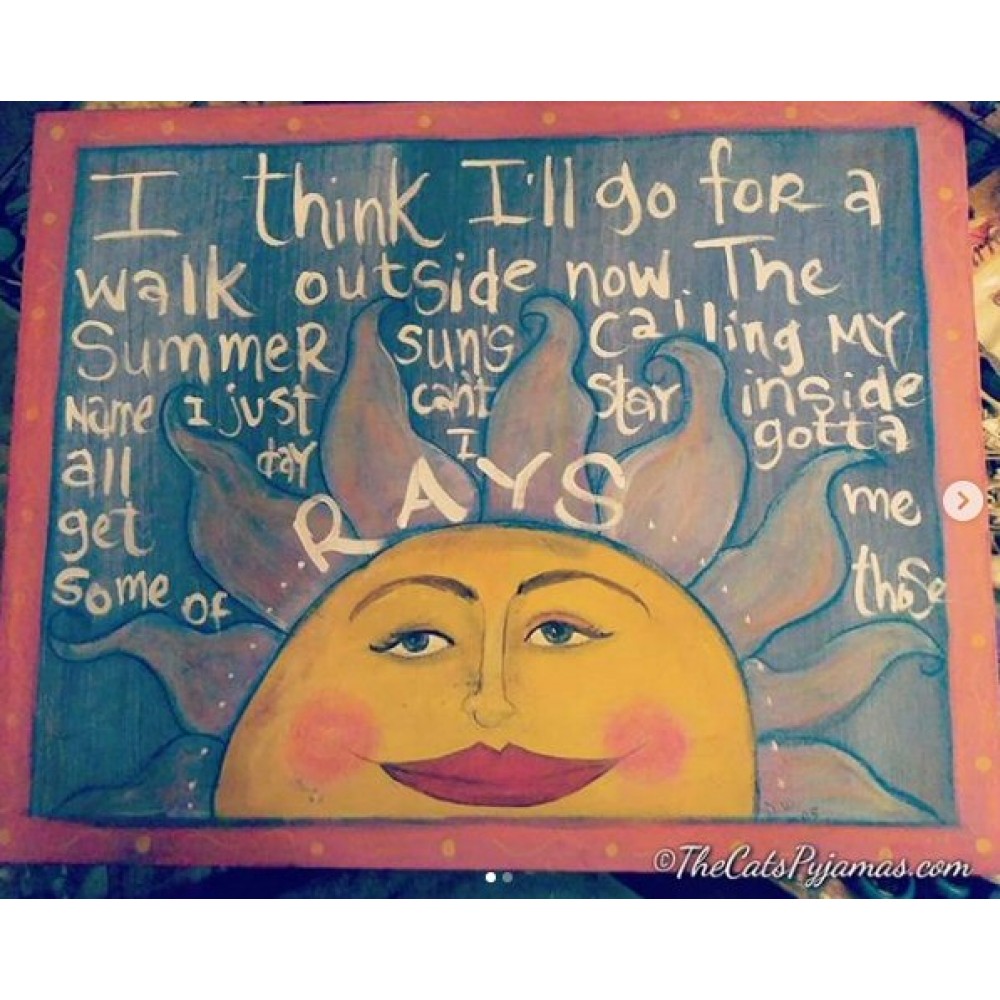 I think I'll go for a
walk outside now. The
SummeR sun's calling MY
Name I just can't stay inside
all day I gotta
get me
some of those
RAYS
N.W. 05
©TheCatsPyjamas.com